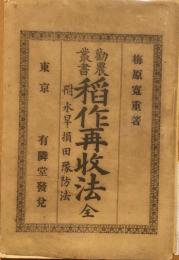 梅原寬重著
勸農叢書
稻作再收法 全
附水旱損田豫防法
東京 有隣堂發兌